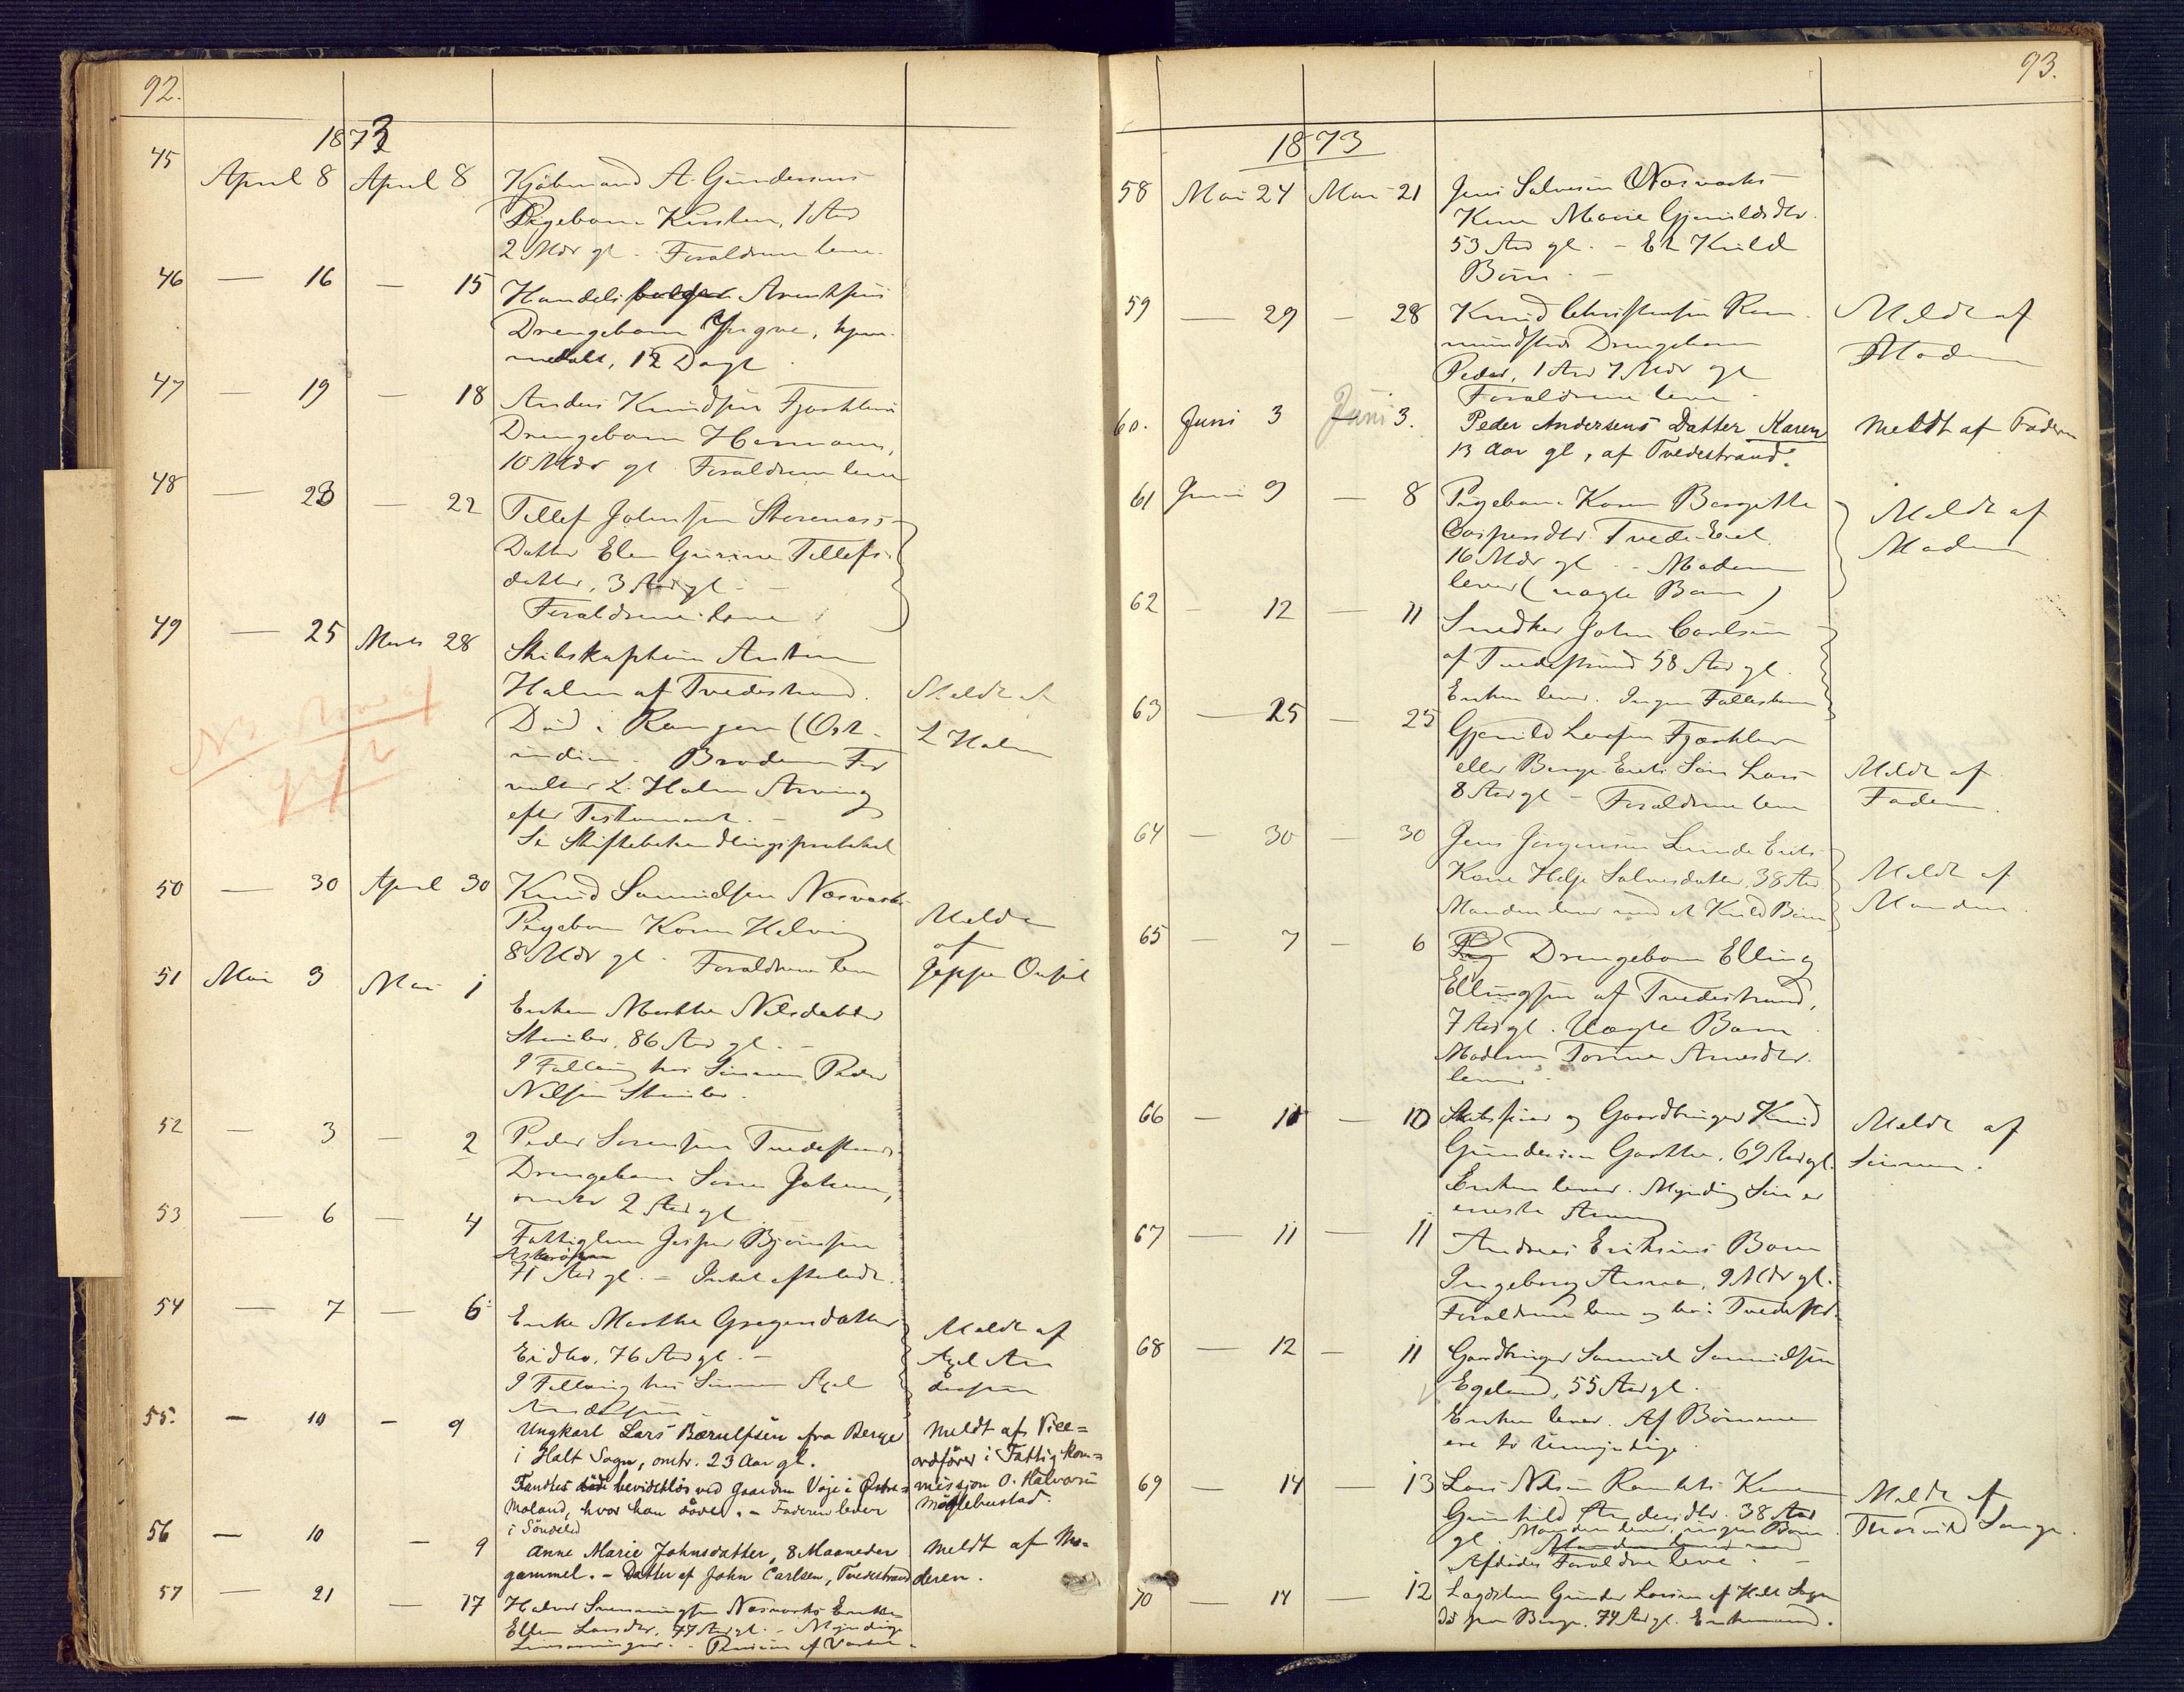 92.
1873
45 April 8 April 8 Kjøbmand A. Gundersens
Pigebarn Kirsten, 1 Aar
2 Mdr gl. Forældrene leve.
46 — 16 — 15 Handels Arentsens
Drengebarn Yngve, hjem-
medøbt, 12 Dage
47 — 19 — 18 Anders Knudsen Fjærkleus
Drengebarn Hermann,
10 Mdr gl. Forældrene leve
48 — 23 — 22 Tellef Johnsen Storenæs's
Datter Elen Gurine Tellefs-
datter, 3 Aar gl. —
Forældrene leve
49 — 25 Marts 28 Skibskaptein Anton
Holm af Tvedestrand. Meldt af
Død i Rangon (Ost- L Holm
indien. Broderen For
valter L. Holm Arving
efter Testament. —
Se Skiftebehandlingsprotokol
NB
50 — 30 April 30 Knud Samuelsen Næsværks
Pigebarn Karen Helvig Meldt
8 Mdr gl. Forældrene leve af
51 Mai 3 Mai 1 Jeppe
Enken Marthe Nilsdatter
86 Aar gl. —
I Fællig hos Sønnen Peder
Nilsen
52 — 3 — 2 Peder Sørensen Tvedestrands
Drengebarn Søren Johan,
omtr 2 Aar gl
53 — 6 — 4 Fattiglem Jesper Bjørnsen
71 Aar gl. — Intet efterladt.
54 — 7 — 6 Enke Marthe Gregersdatter Meldt af
Eidbo, 76 Aar gl. — Axel An
I Fællig hos Sønnen Axel dersen
Andersen
55. — 10 — 9 Ungkarl Lars Bærulfsen fra Berge meldt af Vice-
i Holt Sogn, omtr. 23 Aar gl. ordfører i Fattigkom-
Fandtes bevidstløs ved Gaarden Voje i Østre- mission O. Halvorsen
Moland, hvor han døde. — Faderen lever Møglebustad.
i Søndeled
56 — 10 — 9 Anne Marie Johnsdatter, 8 Maaneder meldt af Mo-
gammel. — Datter af John Carlsen, Tvedestrand deren.
57 — 21 — 17 Halvor Svenningsen Næsværks Enke
Ellen Larsdtr, 77 Aar gl. — Myndige
Livsarvinger. — Pension af Værket.
93.
1873
58 Mai 24 Mai 21 Jens Salvesen Næsværks
Kone Marie Gjeruldsdtr.
53 Aar gl. — Et Kuld
Børn. —
59 — 29 — 28 Knud Christensen Rom- Meldt af
mundsteds Drengebarn Moderen
Peder, 1 Aar 7 Mdr gl
Forældrene leve.
60. Juni 3 Juni 3. Peder Andersens Datter Karen meldt af Faderen
13 Aar gl, af Tvedestrand.
61 Juni 9 — 8 Pigebarn Karen Bergitte Meldt af
Caspersdtr Tvede-Eiet Moderen
16 Mdr gl — Moderen
lever (uægte Barn)
62 — 12 — 11 Snedker John Carlsen
af Tvedestrand 58 Aar gl.
Enken lever. Ingen Fællesbørn
63 — 25 — 25 Gjeruld Larsen Fjærkleu
eller Berge Eiets Søn Lars Meldt af
8 Aar gl — Forældrene leve Faderen
64 — 30 — 30 Jens Jørgensen Lunde Eiets
Kone Helje Salvesdatter, 38 Aar Meldt af
Manden lever med et Kuld Børn Manden.
65 — 7 — 6 Drengebarn Elling
Ellingsen af Tvedestrand,
7 Aar gl. Uægte Barn
Moderen Torine Arnesdtr.
lever.
66 — 11 — 10 Skibsfører og Gaardbruger Knud Meldt af
Gundersen Gaasthe, 69 Aar gl. Sønnen.
Enken lever. Myndig Søn er
eneste Arving
67 — 11 — 11 Andreas Eriksens Barn
Ingeborg Anna, 9 Mdr gl.
Forældrene leve og bo i Tvedestd.
68 — 12 — 11 Gaardbruger Samuel Samuelsen
Egeland, 55 Aar gl.
Enken lever. Af Børnene
ere to Umyndige.
69 — 14 — 13 Lars Nilsen Kone Meldt af
Gunhild Andersdtr. 38 Aar Thorvald Lange.
gl. Manden lever, ingen Børn.
Afdødes Forældre leve. —
70 — 14 — 12 Lægdslem Gunder Larsen af Holt Sogn
død paa Berge. 74 Aar gl. Enkemand.